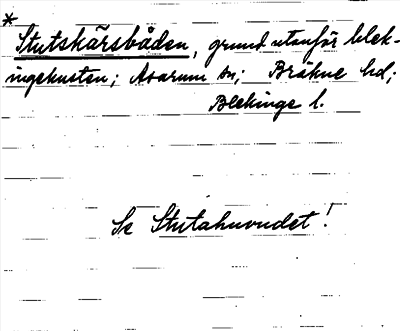 *
Stutskärsbåden, grund utanför blek-
ingekusten; Åsarum sn; Bräkne hd;
Blekinge l.
Se Stutahuvudet!